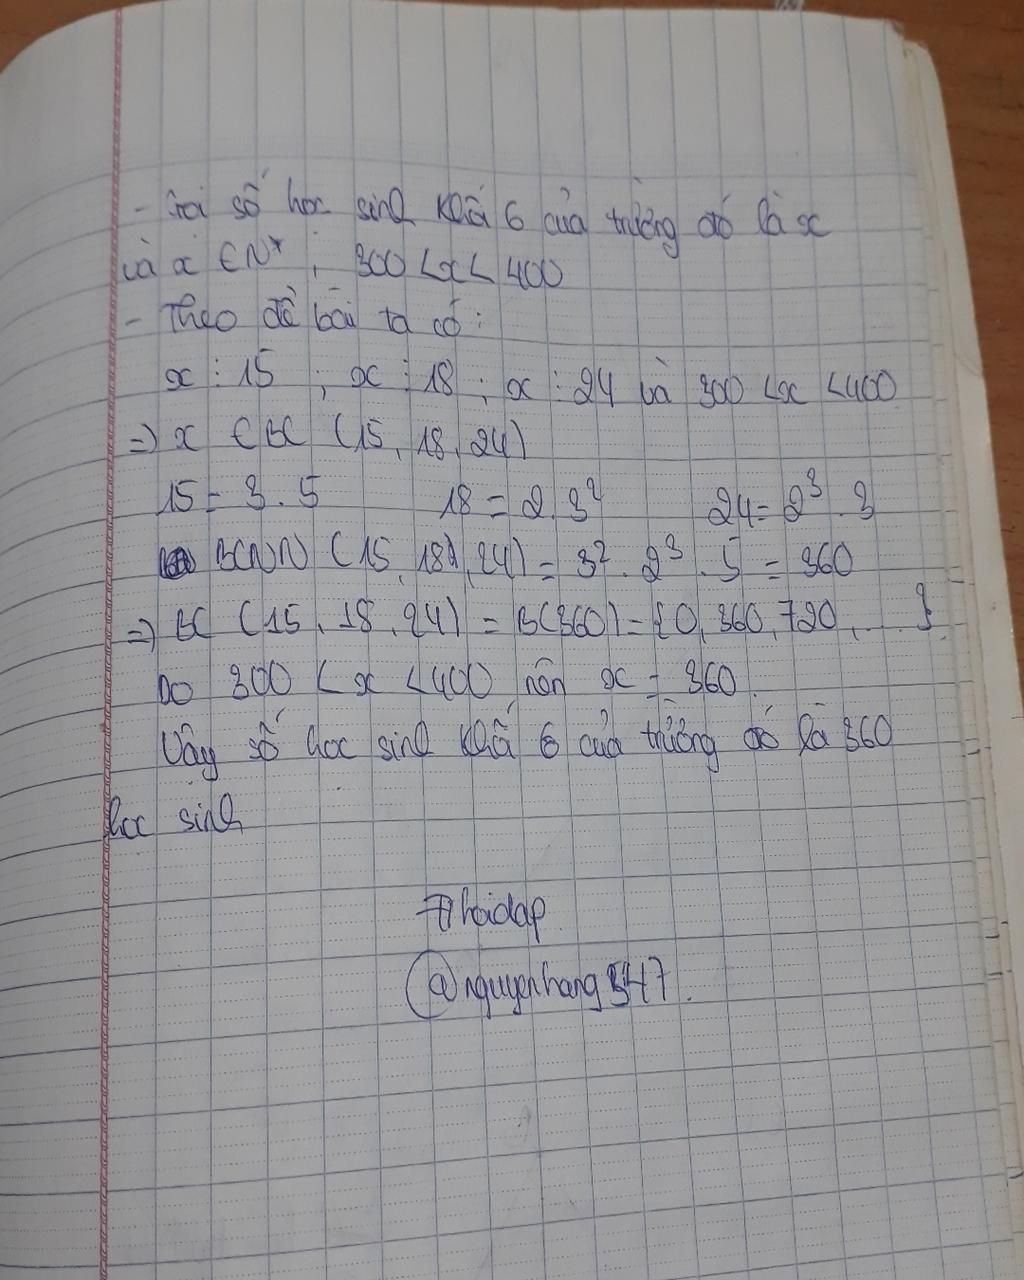 - Gọi số học sinh khối 6 của trường đó là x
và x ∈ N* ; 300 < x < 400
- Theo đề bài ta có:
x ⋮ 15 ; x ⋮ 18 ; x ⋮ 24 và 300 < x < 400
=> x ∈ BC (15, 18, 24)
15 = 3 . 5 18 = 2 . 3² 24 = 2³ . 3
BCNN (15, 18, 24) = 3² . 2³ . 5 = 360
=> BC (15, 18, 24) = B(360) = {0, 360, 720, ...}
Do 300 < x < 400 nên x = 360.
Vậy số học sinh khối 6 của trường đó là 360
học sinh
#hoidap
@nguyenhang347.